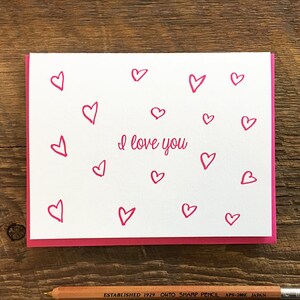 I love you
ESTABLISHED 1929 OHTO SHARP PENCIL APS-280U JAPAN